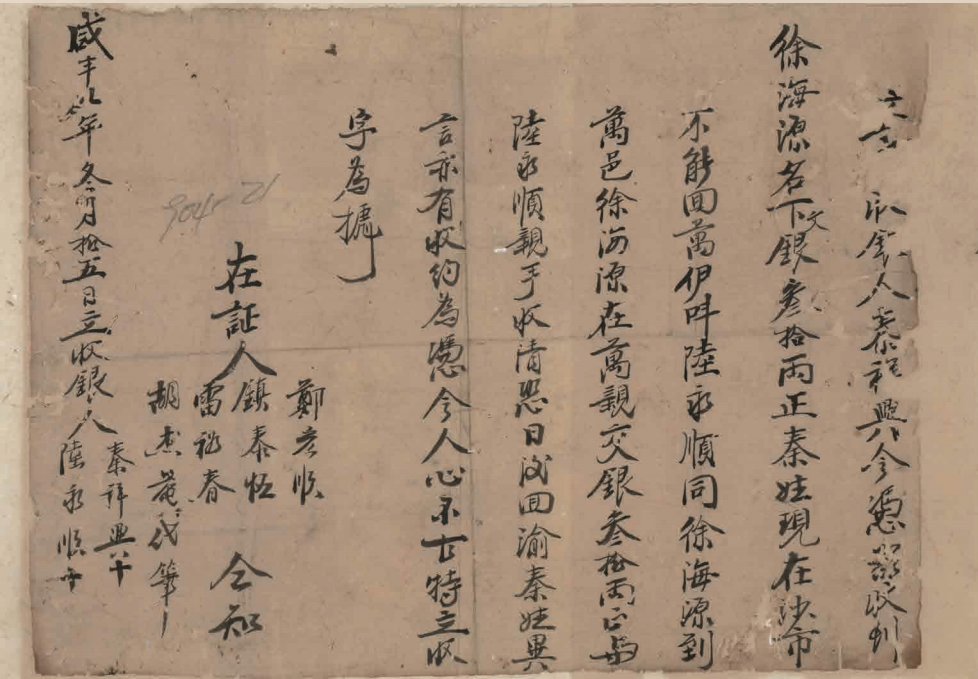 立合 收銀人秦祥興今憑証收到
徐海源名下文銀叁拾兩正秦姓現在沙市
不能回萬伊叫陸永順同徐海源到
萬邑徐海源在萬親交銀叁拾兩正與
陸永順親手收清恐日後回渝秦姓異
言亦有收約為憑今人心不古特立收
字為據
鄭 順
鎮泰恆
在証人 雷 春 仝知
胡 代筆
904-21
咸丰九年冬月拾五日立收銀人 秦祥興 十
陸永順 十